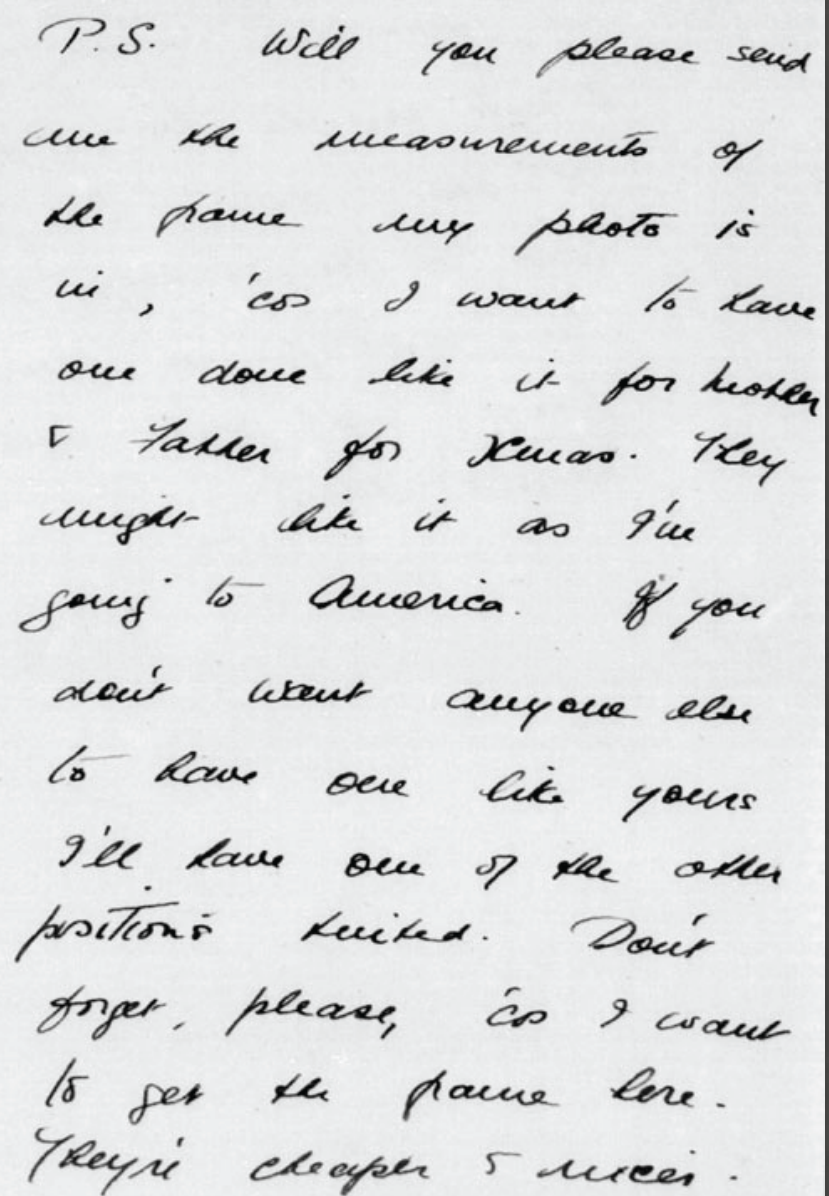 P.S. Will you please send
me the measurements of
the frame my photo is
in, 'cos I want to have
one done like it for Mother
& Father for Xmas. They
might like it as I'm
going to America. If you
don't want anyone else
to have one like yours
I'll have one of the other
positions tinted. Don't
forget, please, 'cos I want
to get the frame here.
They're cheaper & nicer.